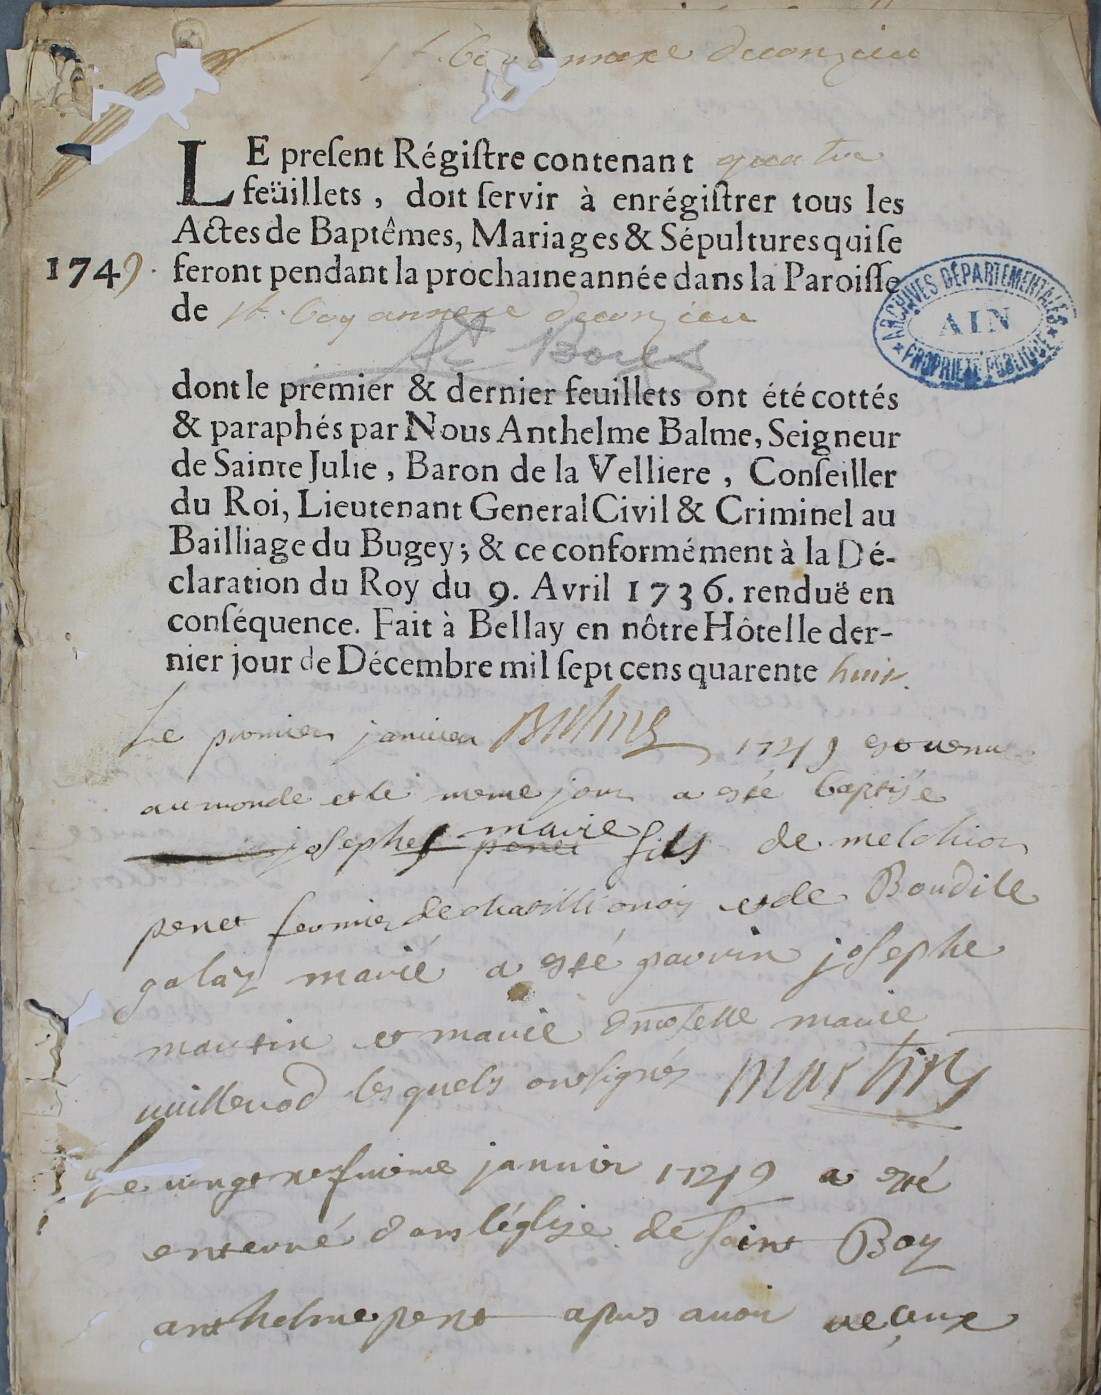 St. Boy annexe deconzieu
LE present Régistre contenant quatre
feüillets, doit servir à enrégistrer tous les
Actes de Baptêmes, Mariages & Sépultures qui se
1749. feront pendant la prochaine année dans la Paroisse
de St. boy annexe deconzieu
St Boys
ARCHIVES DÉPARTEMENTALES
AIN
PROPRIÉTÉ PUBLIQUE
dont le prémier & dernier feuillets ont été cottés
& paraphés par Nous Anthelme Balme, Seigneur
de Sainte Julie, Baron de la Velliere, Conseiller
du Roi, Lieutenant General Civil & Criminel au
Bailliage du Bugey; & ce conformément à la Dé-
claration du Roy du 9. Avril 1736. renduë en
conséquence. Fait à Bellay en nôtre Hôtel le der-
nier jour de Décembre mil sept cens quarente huit.
Balme
Le premier janvier 1749 est venu
au monde et le meme jour a esté baptisé
josephe marie fils de melchior
penet fermier de et de Boudile
galay marié a esté parrin josephe
martin et marie dmoiselle marie
vuillerod lesquels ont signés Martin
Le vingt neufvieme janvier 1749 a esté
enterré dans l'église de saint Boy
anthelme penet apres avoir reçeux